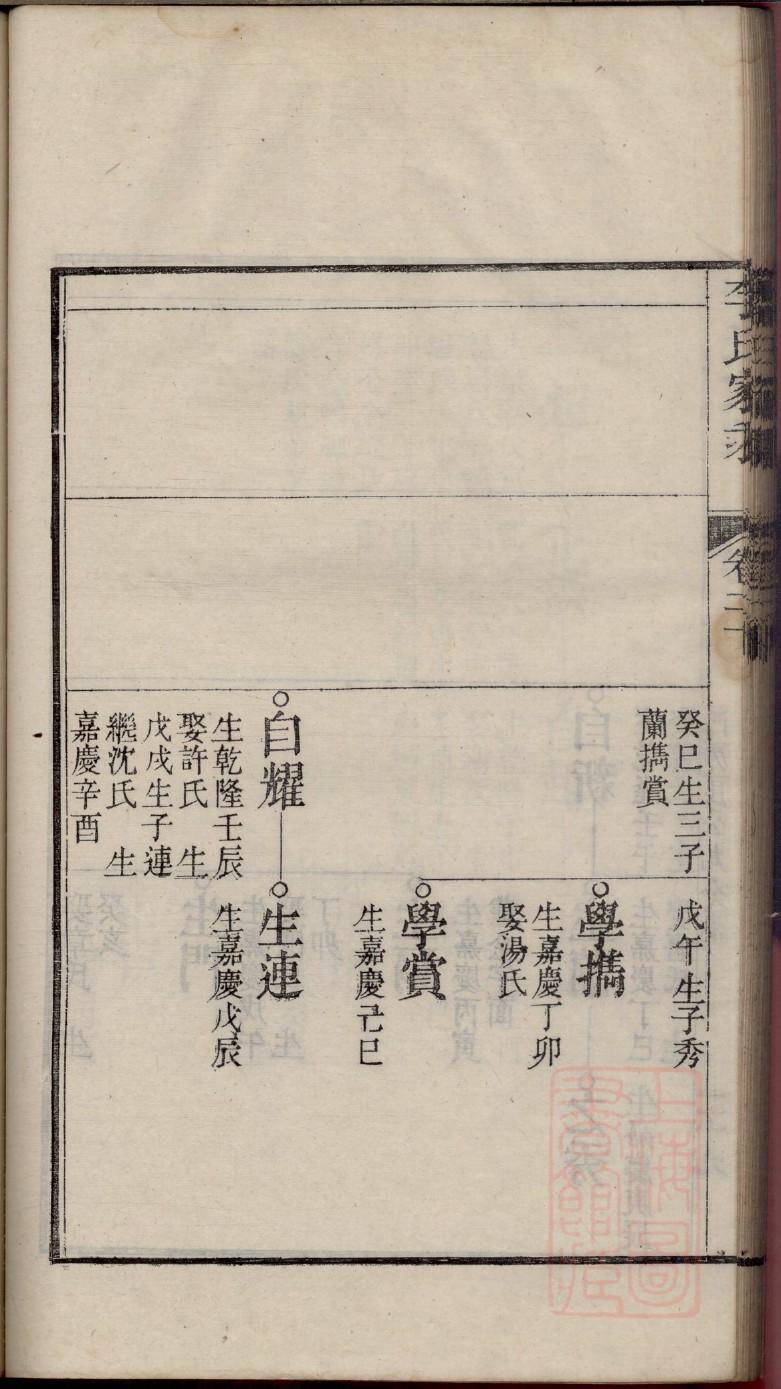 李氏家乘
卷二十
癸巳生三子
蘭㩦賞
自耀
生乾隆壬辰
娶許氏 生
戊戌生子連
繼沈氏 生
嘉慶辛酉
戊午生子秀
學㩦
生嘉慶丁卯
娶湯氏
學賞
生嘉慶己巳
生連
生嘉慶戊辰